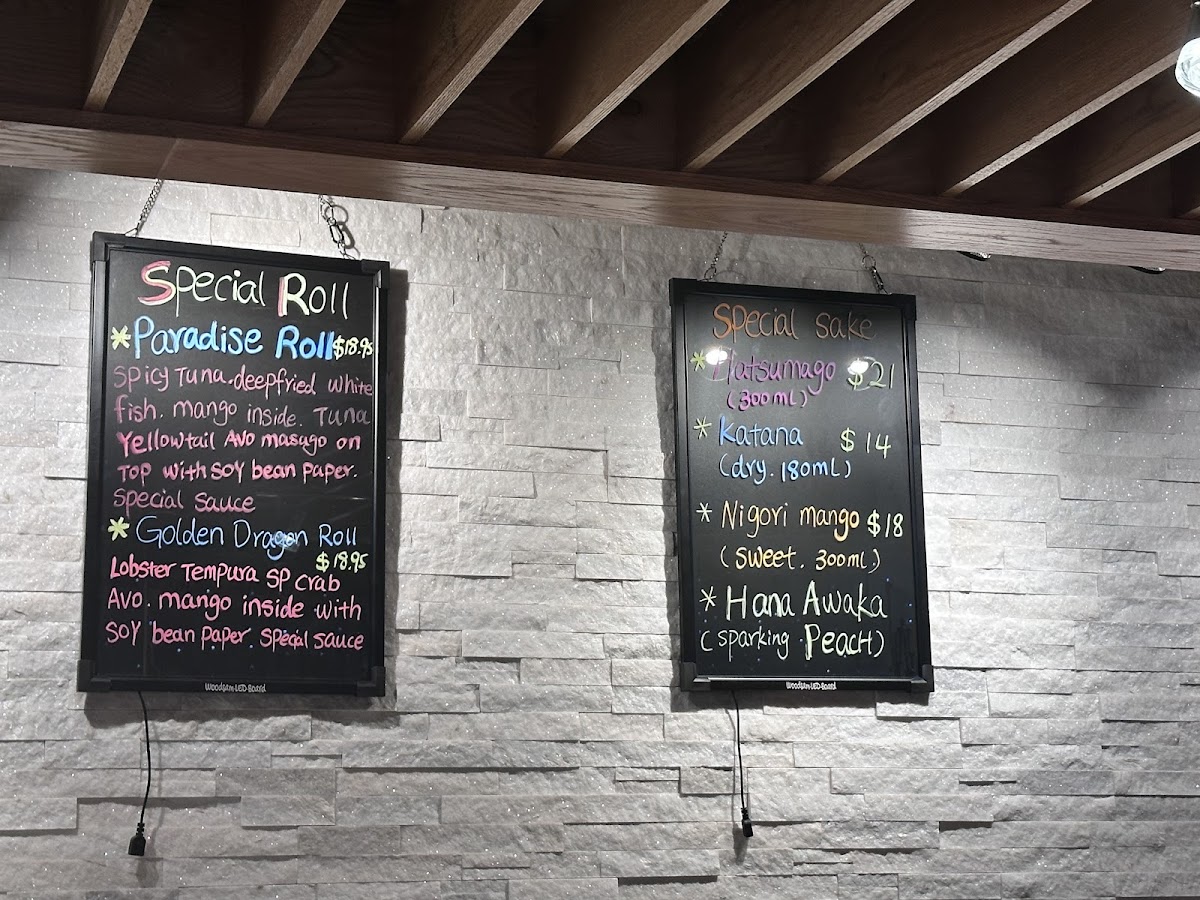 Special Roll
*Paradise Roll $18.95
Spicy Tuna. deepfried white
fish. mango inside. Tuna
Yellowtail Avo masago on
Top with soy bean paper.
special sauce
* Golden Dragon Roll
$18.95
Lobster Tempura SP crab
Avo. mango inside with
soy bean paper. special sauce
Woodsam LED Board
Special sake
* Hatsumago $21
(300ml)
* Katana $14
(dry. 180ml)
* Nigori mango $18
(sweet. 300ml)
* Hana Awaka
(sparking Peach)
Woodsam LED Board